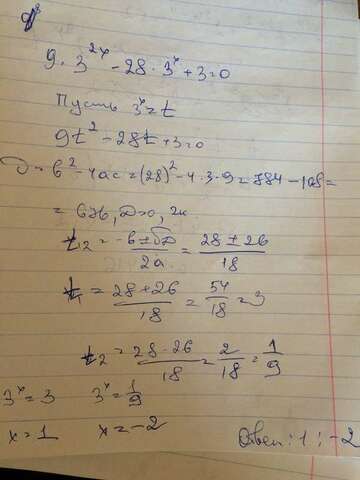 9 · 3^{2x} - 28 · 3^x + 3 = 0
Пусть 3^x = t
9t² - 28t + 3 = 0
D = b² - 4ac = (28)² - 4 · 3 · 9 = 784 - 108 =
= 676, D>0, 2к.
t₁₂ = (-b ± √D)/2a = (28 ± 26)/18
t₁ = (28 + 26)/18 = 54/18 = 3
t₂ = (28 - 26)/18 = 2/18 = 1/9
3^x = 3 3^x = 1/9
x = 1 x = -2 Ответ: 1; -2